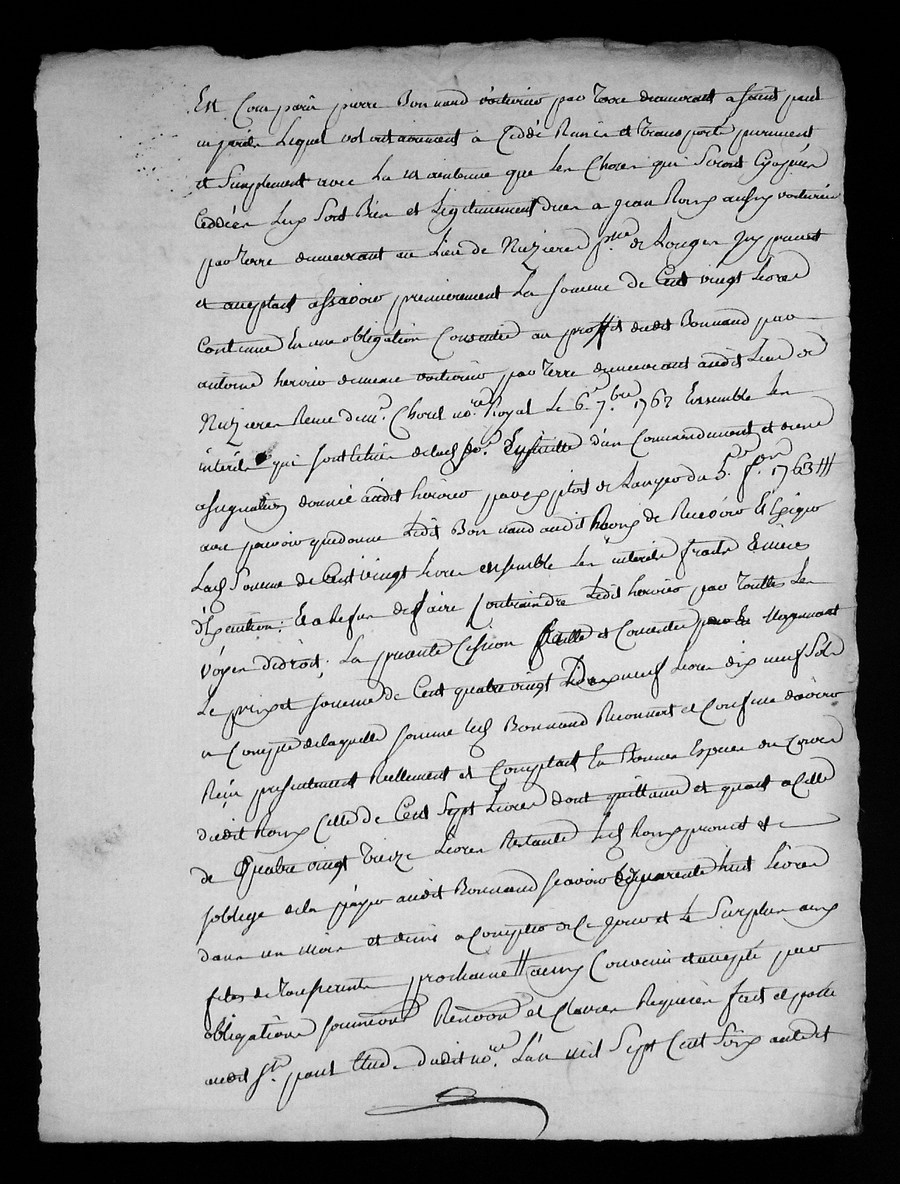 Est Comparu pierre Bonnaud voiturier par terre demeurant a saint paul
en jarés Lequel volontairement a Ceddé Remis et Transporté purement
et Simplement avec La maintenue que les Choses qui Seront Cy après
Ceddées Luy Sont Bien et Legitimement dues a jean Roux aussy voiturier
par terre demeurant au Lieu de Nuzieres psse de Longes Icy present
et acceptant assavoir premierement La somme de Cent vingt Livres
Contenue En une obligation Consentie au proffit dudit Bonnaud par
antoine hervier demeure voiturier par terre demeurant audit Lieu de
Nuzieres Receue de mr. Chorel nore. Royal Le 6e. 7bre. 1762 Ensemble les
interets qui sont En suitte d'un Commandement et d'une
assignation donnée audit hervier par exploit de du 5e. 1763 //
avec pouvoir que donne Ledit Bonnaud audit Roux de Recevoir & Exiger
Lad. Somme de Cent vingt Livres ensemble Les interets fraits & mises
d'Execution; Et a Refus de faire Contraindre Ledit hervier par Touttes Les
voyes de droit; La presente Cession faitte et Consentie Moyennant
Le prix et somme de Cent quatre vingt dix neuf Livres dix neuf Sols
a Compte de laquelle somme led. Bonnaud Reconnoit et Confesse d'avoir
Reçu presentement Reellement et Comptant En Bonnes Especes du Cours
dudit Roux Celle de Cent Sept Livres dont quittance et quant a Celle
de Quatre vingt treize Livres Restante led. Roux promet et
s'oblige de la payer audit Bonnaud scavoir quarente huit Livres
dans un mois et demis a Compter de Ce jour et Le Surplus aux
fetes de prochaine // ainsy Convenu et accepté par
obligations soumissions Renvond. et Clauses Requises fait et passé
audit St. paul Etude dudit nore. L'an mil Sept Cent Soix ante et